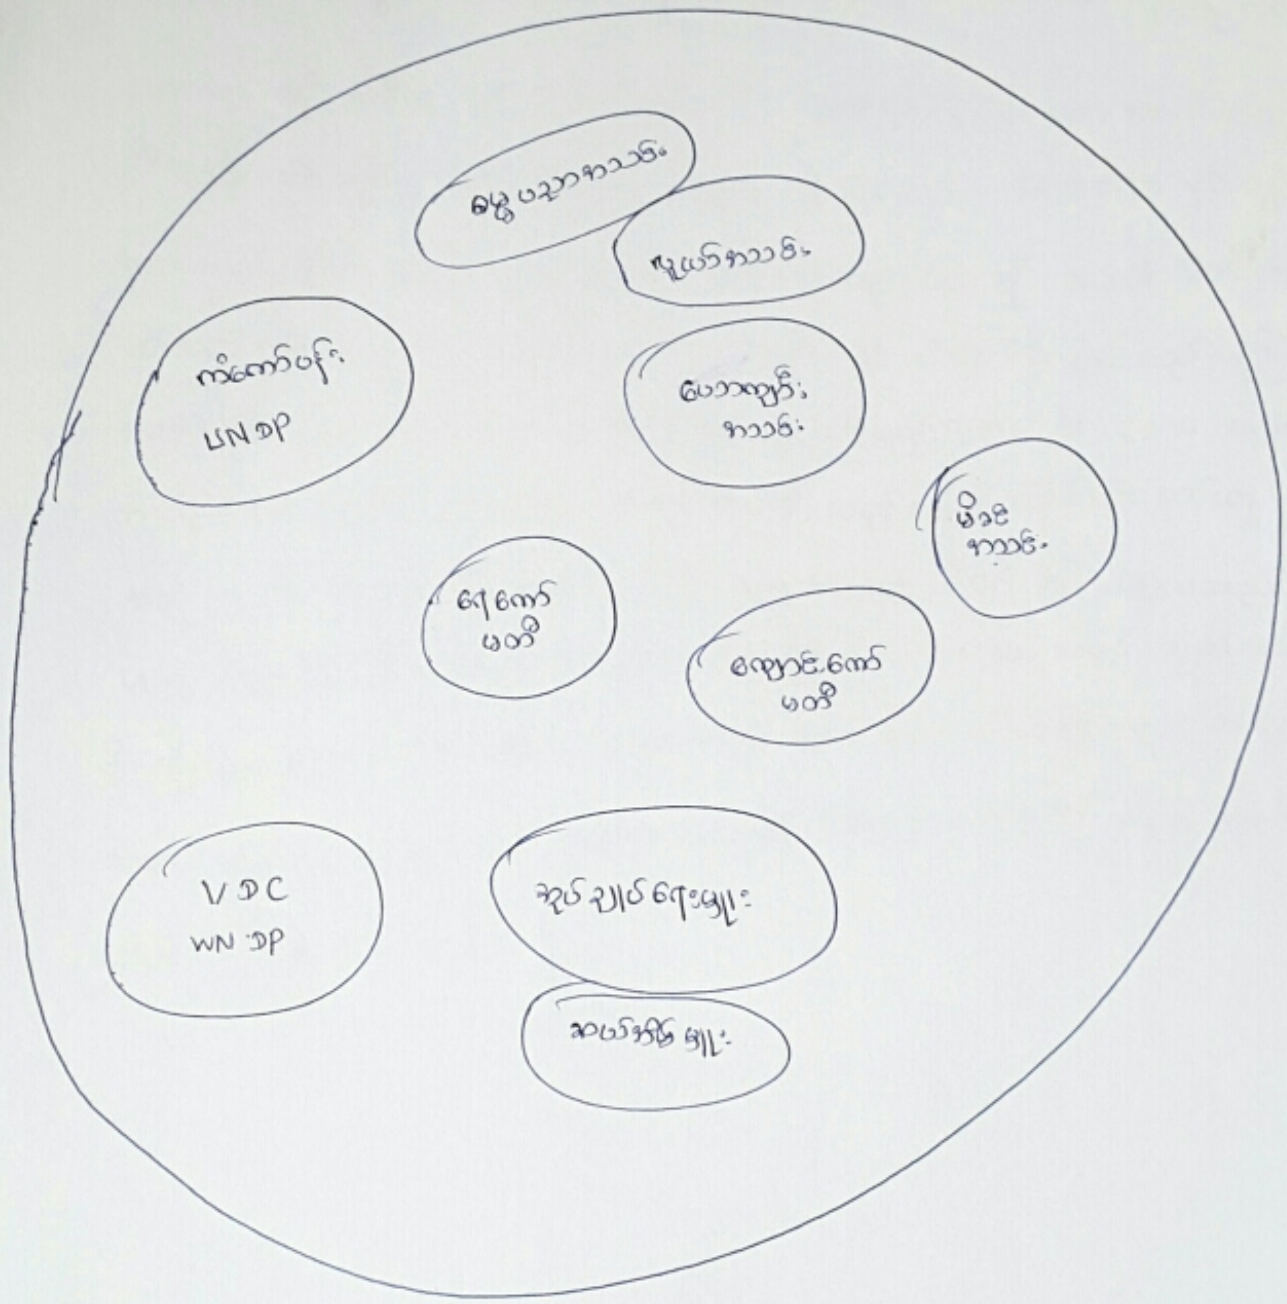 ဓမ္မပညာအသင်း
လူငယ်အသင်း
ကံ့ကော်ပန်း
UNDP
ဖောကျွံး
အသင်း
မိခင်
အသင်း
ရေကော်
မတီ
ကျောင်းကော်
မတီ
VDC
WNDP
အုပ်ချုပ်ရေးမှူး
ဆယ်အိမ်မှူး